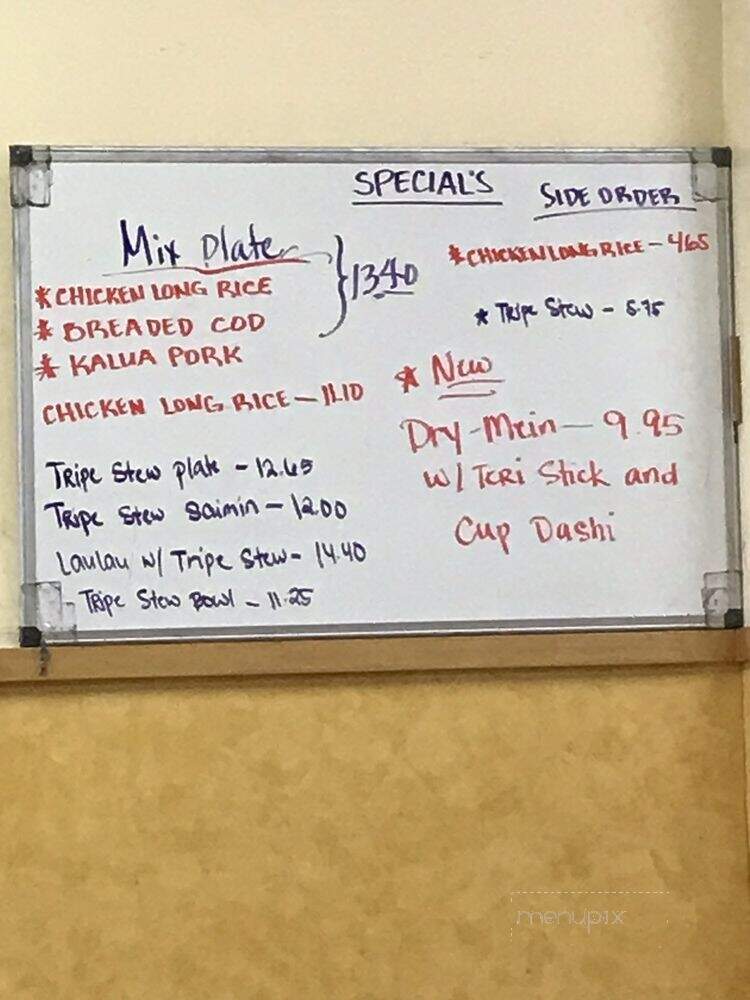 SPECIAL'S
Mix Plate
* CHICKEN LONG RICE
* BREADED COD
* KALUA PORK
} 13.40
CHICKEN LONG RICE - 11.10
Tripe Stew Plate - 12.65
Tripe Stew Saimin - 12.00
Laulau w/ Tripe Stew - 14.40
- Tripe Stew Bowl - 11.25
SIDE ORDER
* CHICKEN LONG RICE - 4.65
* Tripe Stew - 5.75
* New
Dry-Mein - 9.95
w/ Teri Stick and
Cup Dashi
menupix